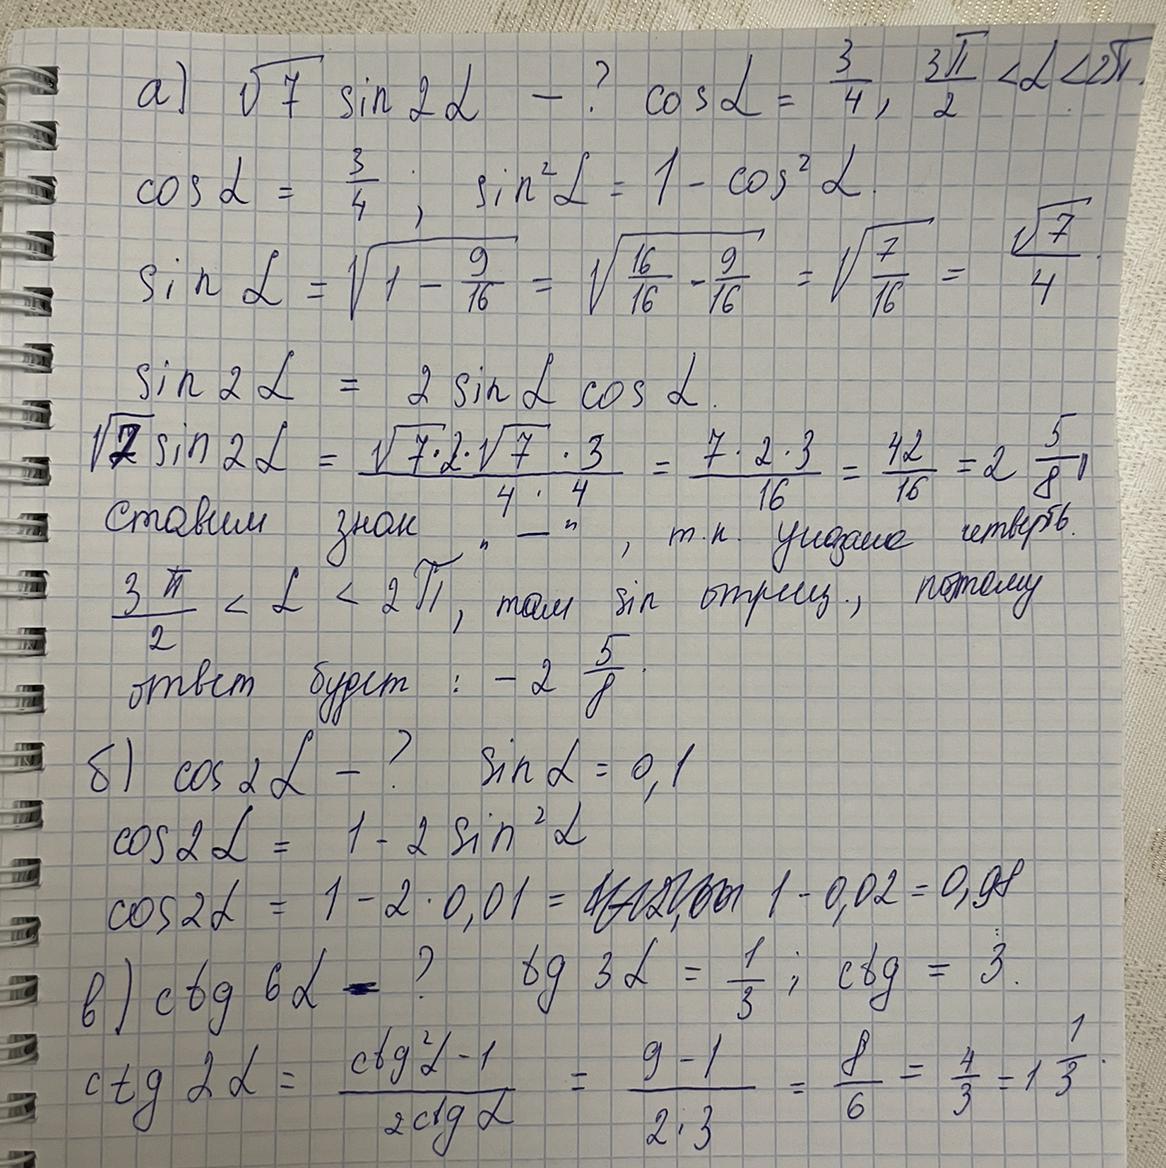 а) √7 sin 2α — ? cos α = 3/4, 3π/2 < α < 2π.
cos α = 3/4 ; sin²α = 1 - cos²α.
sin α = √(1 - 9/16) = √(16/16 - 9/16) = √(7/16) = √7/4.
sin 2α = 2 sin α cos α.
√7 sin 2α = (√7·2·√7·3)/(4·4) = (7·2·3)/16 = 42/16 = 2 5/8,
Ставим знак „—", т.к. указана четверть.
3π/2 < α < 2π, там sin отриц., потому
ответ будет : - 2 5/8.
б) cos 2α — ? sin α = 0,1
cos 2α = 1 - 2 sin²α
cos 2α = 1 - 2·0,01 = 1 - 0,02 = 0,98
в) ctg 6α - ? tg 3α = 1/3 ; ctg = 3.
ctg 2α = (ctg²α - 1)/(2ctg α) = (9 - 1)/(2·3) = 8/6 = 4/3 = 1 1/3.